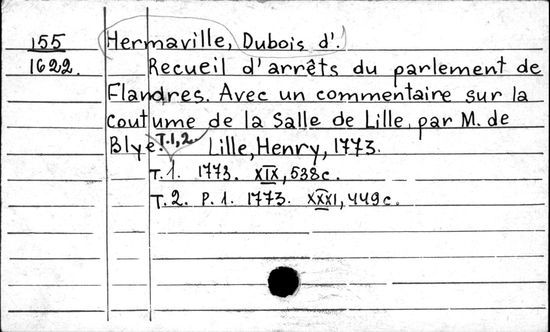 155 Hermaville, Dubois d'.
1622. Recueil d'arrêts du parlement de
Flandres. Avec un commentaire sur la
coutume de la Salle de Lille, par M. de
Blye. T.1,2. Lille, Henry, 1773.
T.1. 1773. XIX, 538c.
T.2. P.1. 1773. XXXI, 449c.